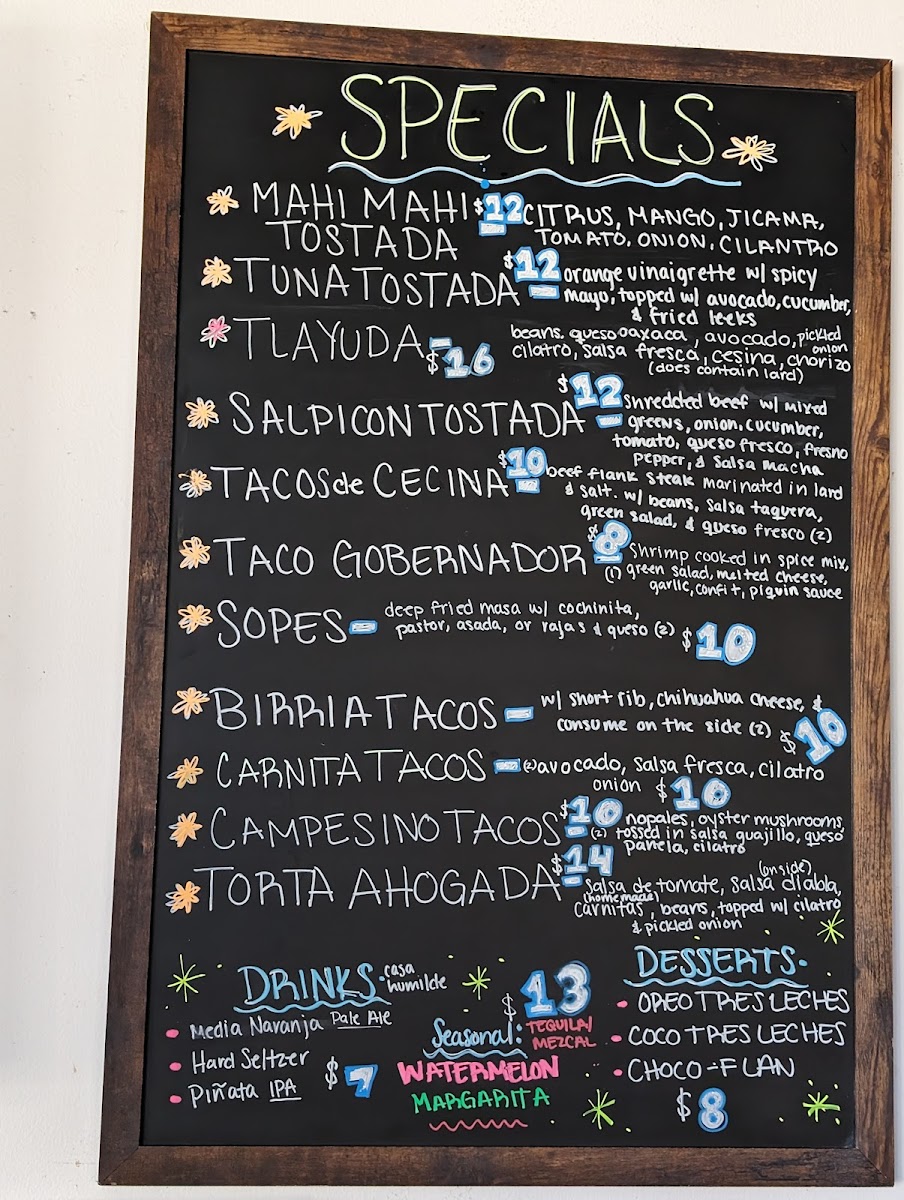 SPECIALS
MAHI MAHI $12 CITRUS, MANGO, JICAMA,
TOSTADA TOMATO, ONION, CILANTRO
TUNA TOSTADA $12 orange vinaigrette w/ spicy
mayo, topped w/ avocado, cucumber,
& fried leeks
TLAYUDA - $16 beans, queso oaxaca, avocado, pickled onion
cilatro, salsa fresca, cesina, chorizo
(does contain lard)
SALPICON TOSTADA - $12 Shredded beef w/ mixed
greens, onion, cucumber,
tomato, queso fresco, fresno
pepper, & salsa macha
TACOS de CECINA - $10 beef flank steak marinated in lard
& salt. w/ beans, salsa taquera,
green salad, & queso fresco (2)
TACO GOBERNADOR - $8 Shrimp cooked in spice mix,
(1) green salad, melted cheese,
garlic, confit, piquin sauce
SOPES - deep fried masa w/ cochinita,
pastor, asada, or rajas & queso (2) $10
BIRRIA TACOS - w/ short rib, chihuahua cheese, &
consume on the side (2) $10
CARNITA TACOS - (2) avocado, salsa fresca, cilatro
onion $10
CAMPESINO TACOS - $10 nopales, oyster mushrooms,
(2) tossed in salsa guajillo, queso
panela, cilatro
TORTA AHOGADA - $14 (on side)
Salsa de tomate, salsa diabla,
(homemade)
carnitas, beans, topped w/ cilatro
& pickled onion
DRINKS • casa humilde
• Media Naranja Pale Ale
• Hard Seltzer
• Piñata IPA
$7
$13
Seasonal: TEQUILA/
MEZCAL
WATERMELON
MARGARITA
DESSERTS •
• OREO TRES LECHES
• COCO TRES LECHES
• CHOCO-FLAN
$8